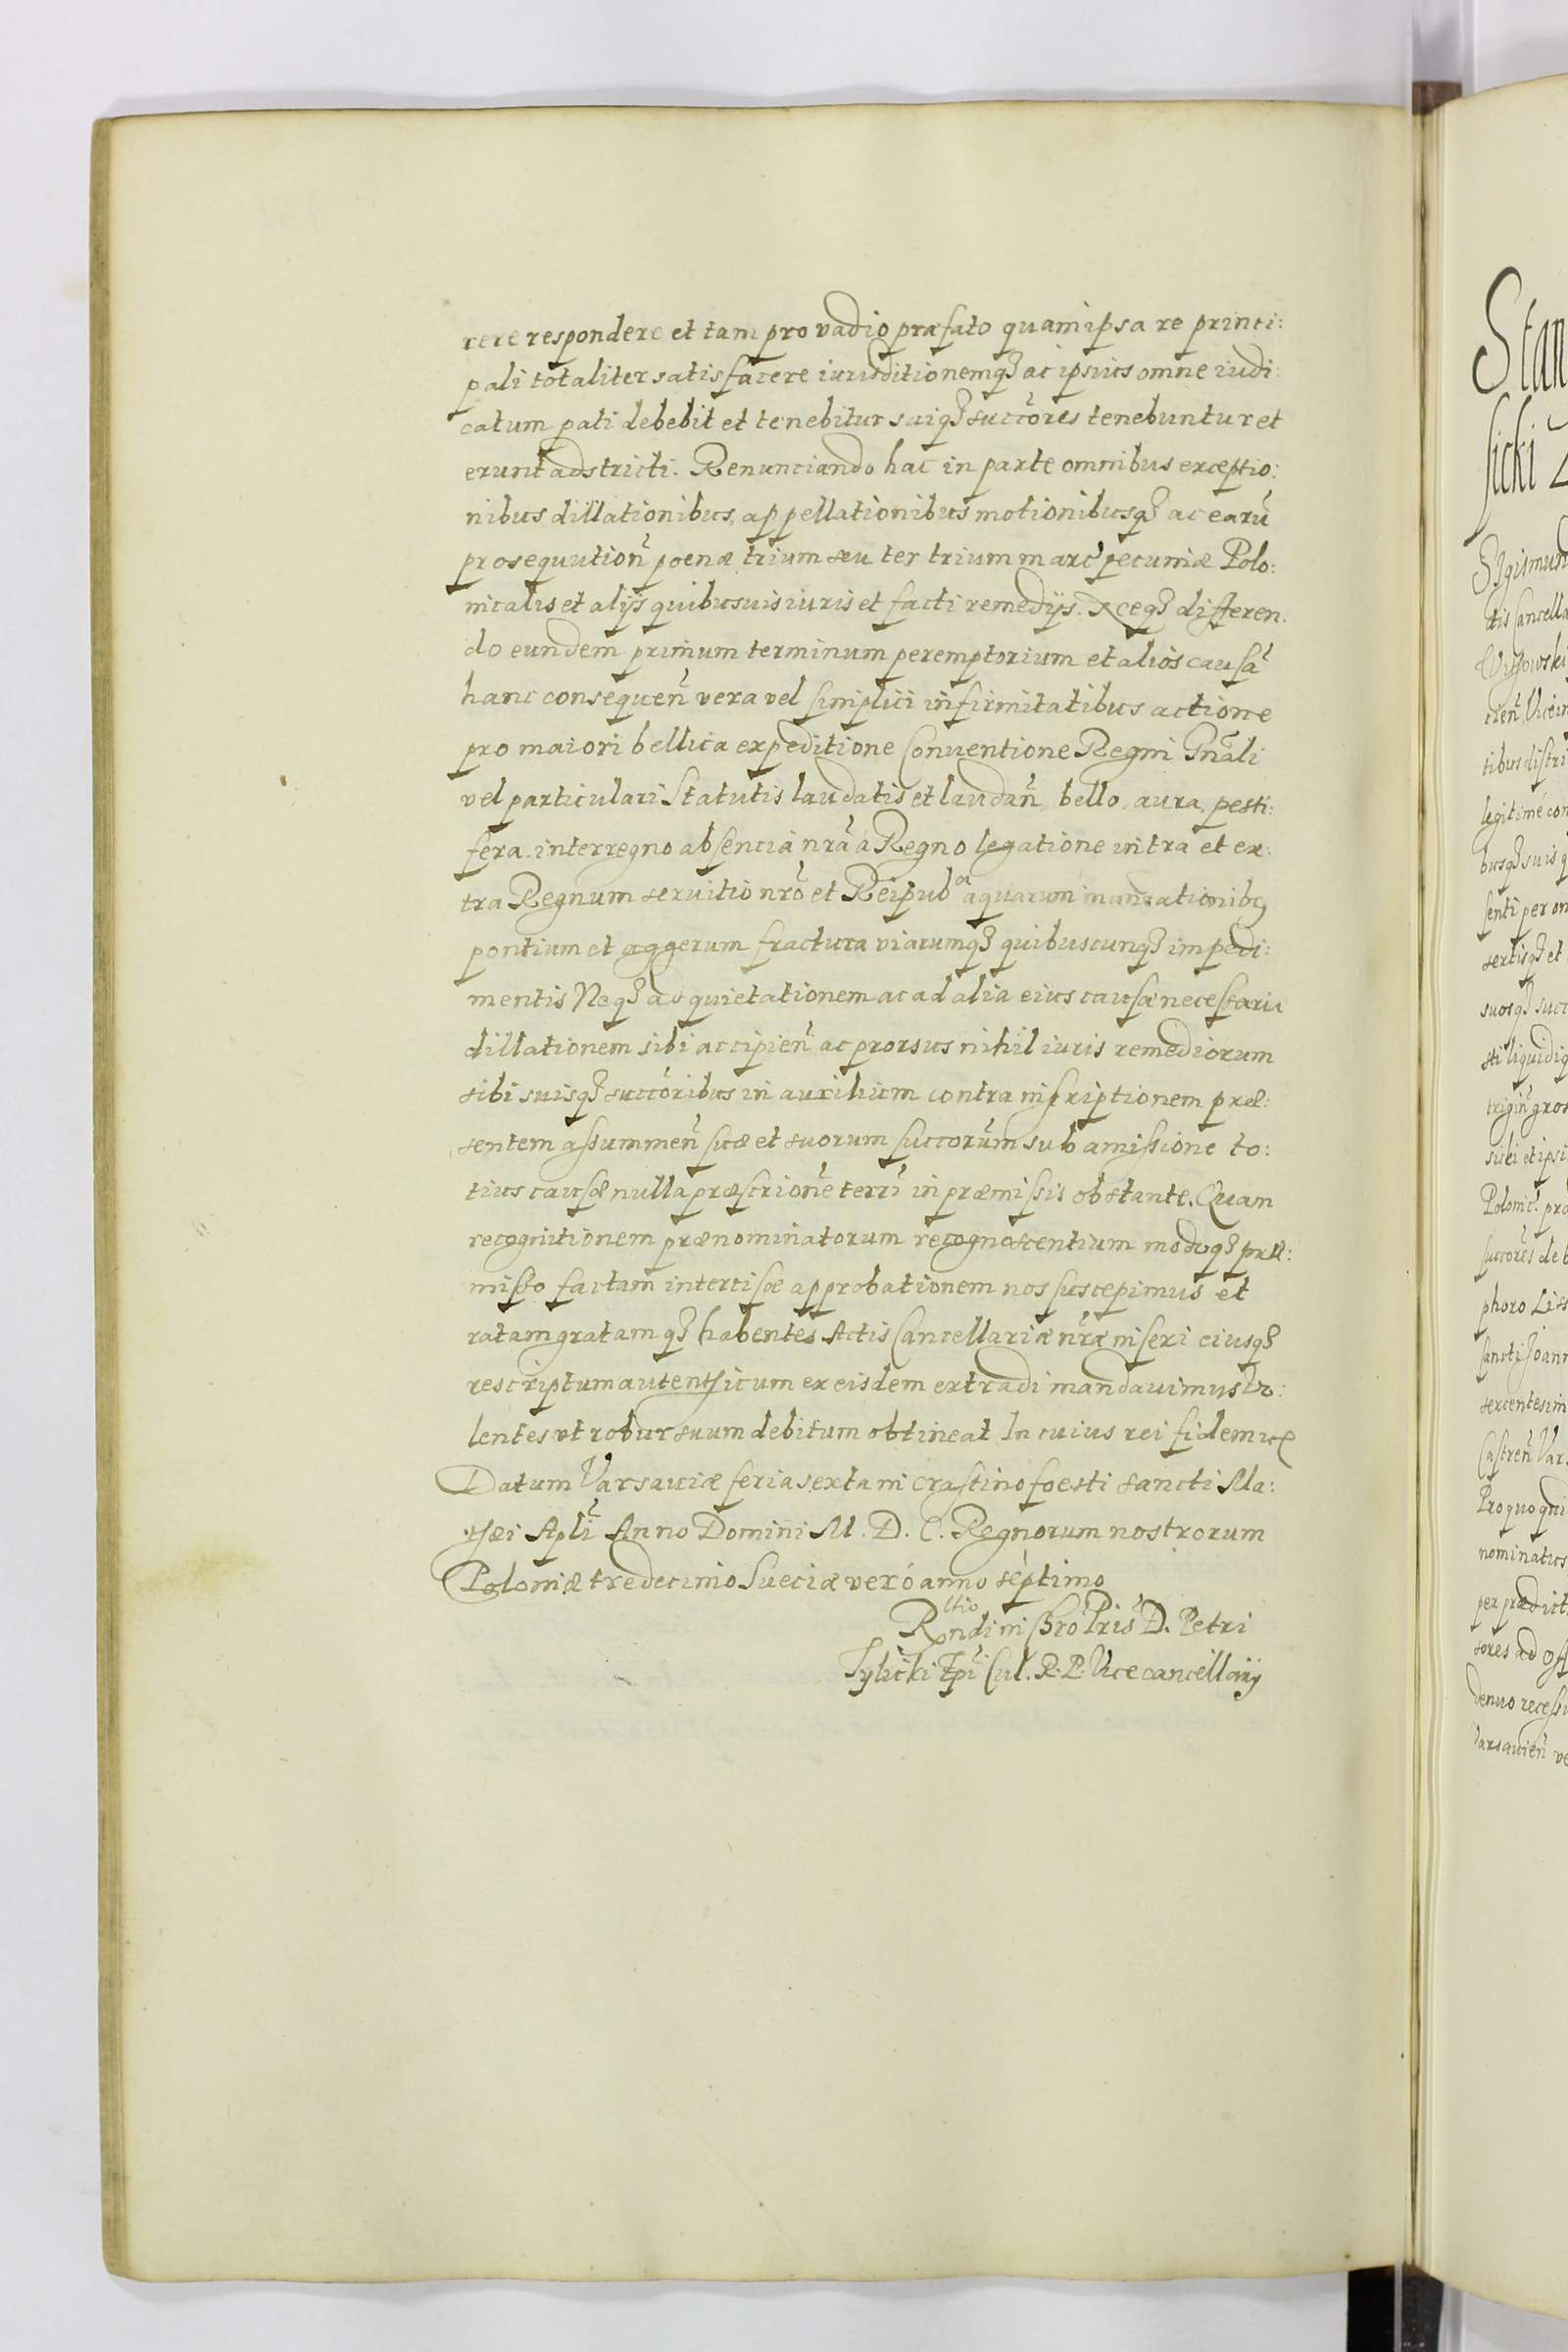 rere respondere et tam pro vadio præfato quam ipsa re princi:
pali totaliter satisfacere iurisditionemq3 ac ipsius omne iudi:
catum pati debebit et tenebitur suiq3 succ̃ores tenebuntur et
erunt adstricti. Renunciando hac in parte omnibus exceptio:
nibus dillationibus, appellationibus motionibusq3 ac earũ
prosequution̄ poenæ trium seu ter trium marc̃ pecuniæ Polo:
nicalis et alijs quibusuis iuris et facti remedijs. Neq3 differen.
do eundem primum terminum peremptorium et alios causã
hanc consequen̄ vera vel simplici infirmitatibus actione
pro maiori bellica expeditione Conuentione Regni Gnãli
vel particulari Statutis laudatis et laudan̄, bello, aura, pesti:
fera. interregno absencia nrã à Regno legatione intra et ex:
tra Regnum seruitio nrõ et Reipub aquarum inundationibus
pontium et aggerum fractura viarumq3 quibuscunq3 impedi:
mentis Neq3 ad quietationem ac ad alia eius causæ necessaria
dillationem sibi accipien̄ ac prorsus nihil iuris remediorum
sibi suisq3 succ̃oribus in auxilium contra inscriptionem præ:
sentem assummen̄ suæ et suorum succorũm sub amissione to:
tius causæ nulla præscrionẽ terrĩ in præmissis obstante. Quam
recognitionem prænominatorum recognoscentium modoq3 præ:
misso factam intercisæ approbationem nos suscepimus et
ratam gratamq3 habentes Actis Cancellariæ nr̃æ inseri eiusq3
rescriptum autenthicum ex eisdem extradi mandauimus Vo:
lentes vt robur suum debitum obtineat In cuius rei fidem etc
Datum Varsauiæ feria sexta in crastino foesti sancti Ma:
thæi Aplĩ Anno Domini M. D. C. Regnorum nostrorum
Poloniæ tredecimo Sueciæ verò anno septimo
R̃ndi in Chrõ Pris̃ D. Petri
Tylicki Epĩ Cul. R. P. Vicecancellarij